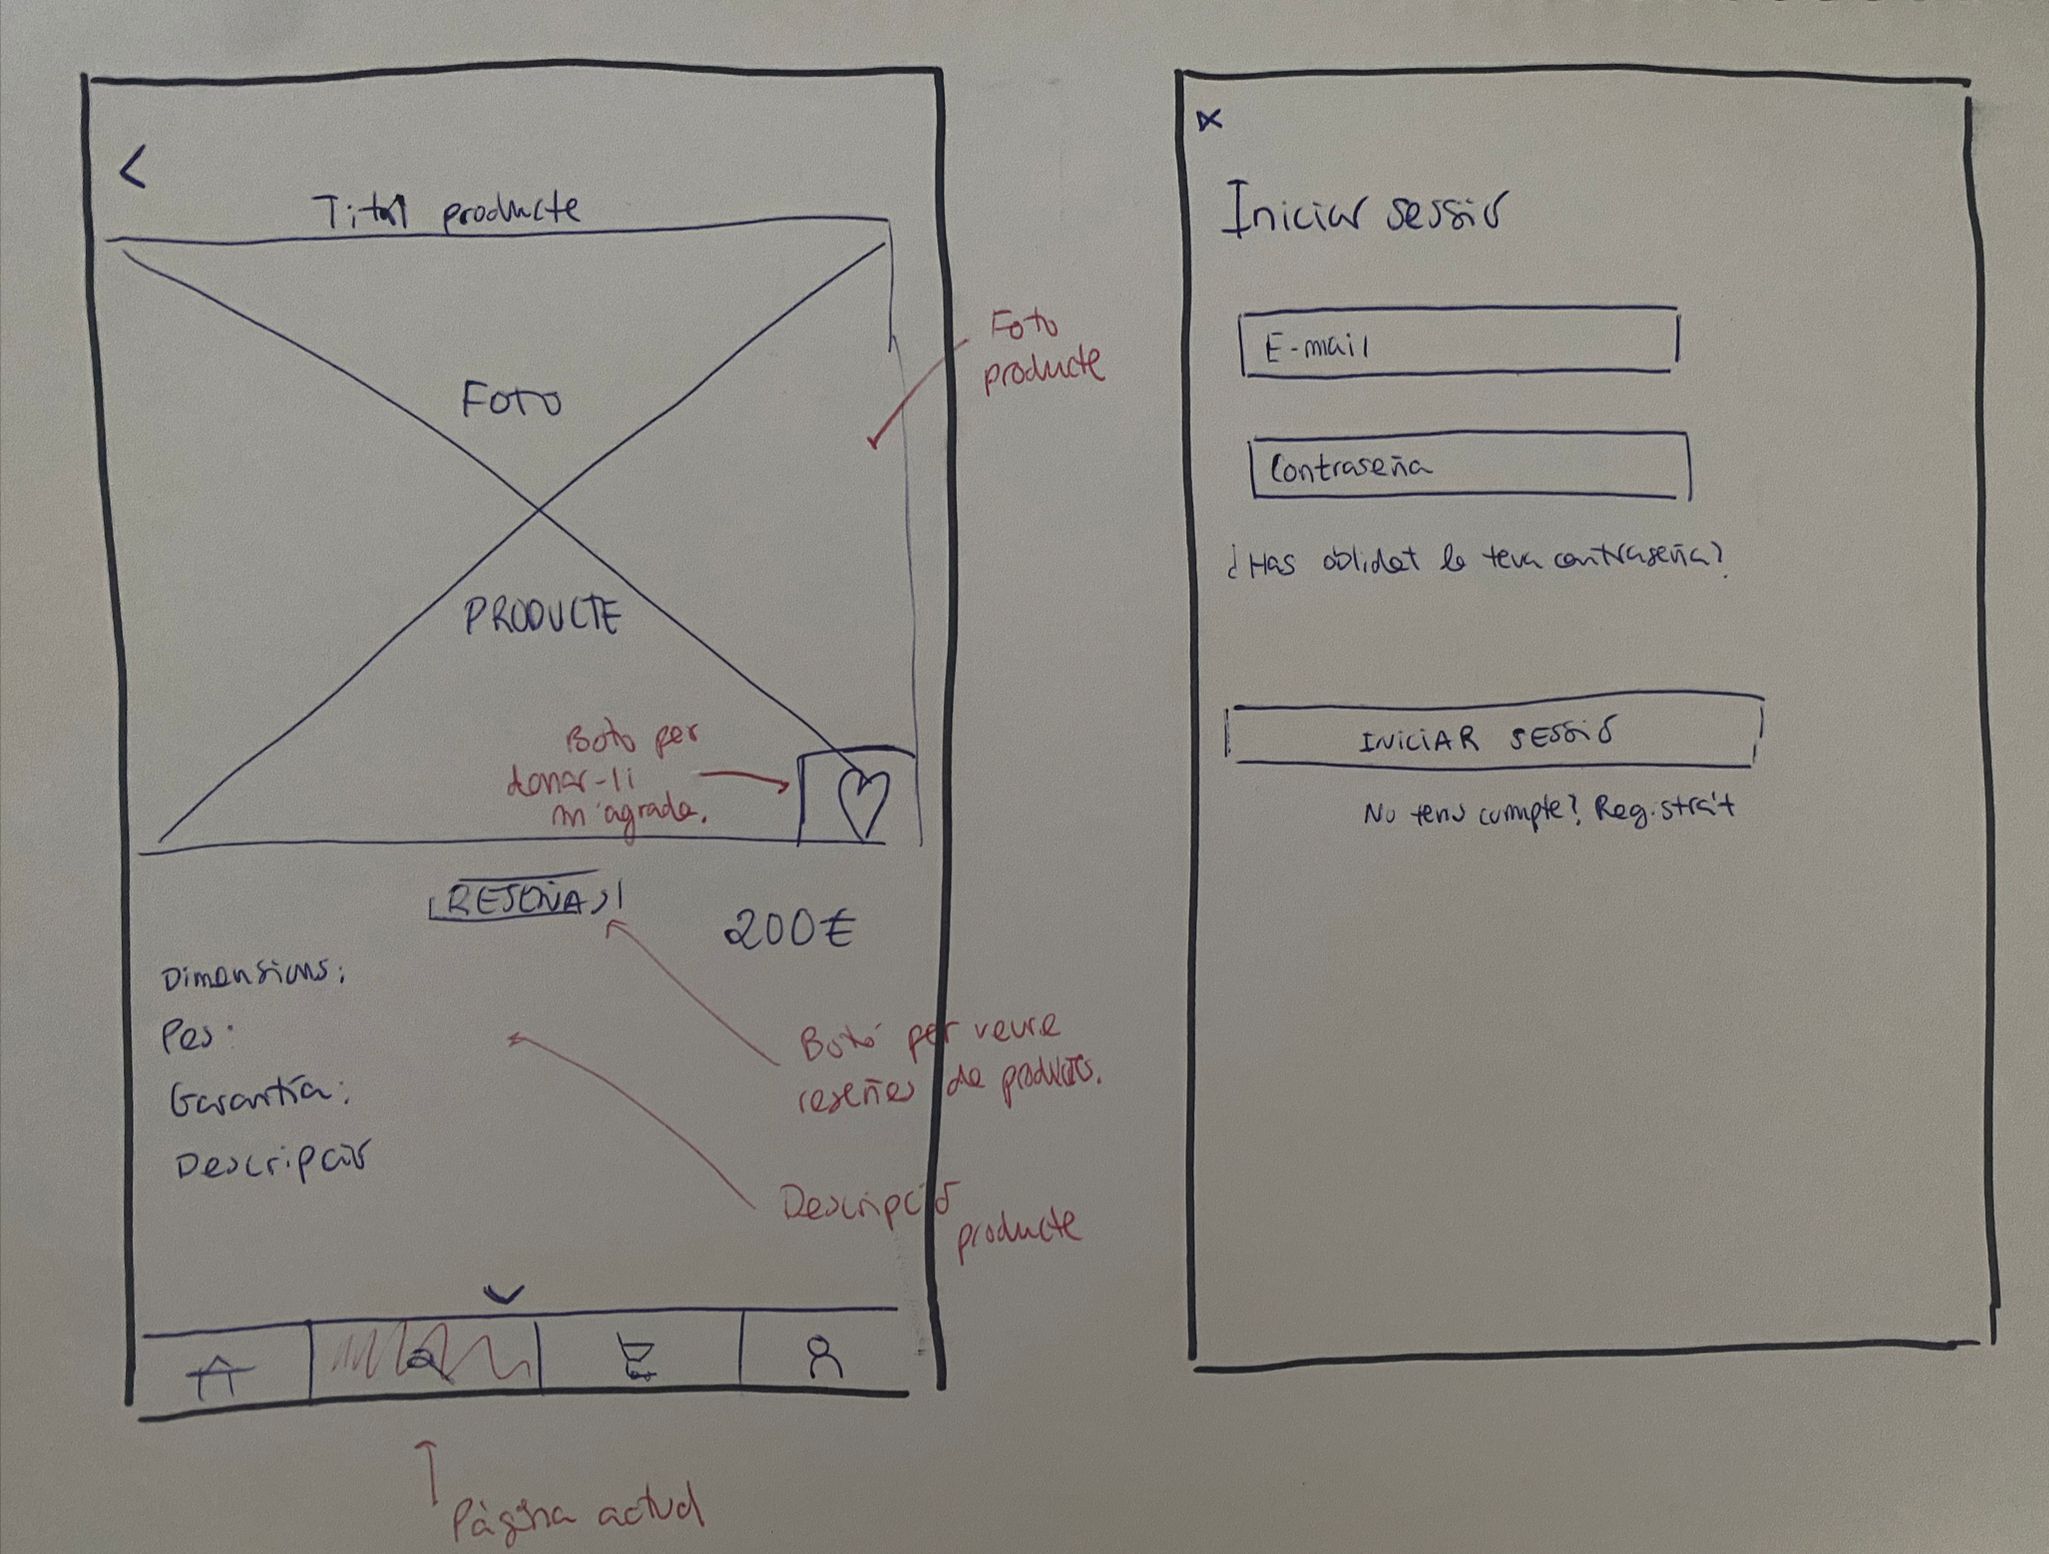 Titol producte
FOTO
PRODUCTE
Foto
producte
Boto per
donar-li
m'agrada.
RESEÑAS
200€
Dimensions:
Pes:
Garantía:
Descripció
Botó per veure
reseñes de productes.
Descripció
producte
Pàgina actual
Iniciar sessió
E-mail
Contraseña
¿Has oblidat la teva contraseña?
INICIAR SESSIÓ
No tens compte? Registra't